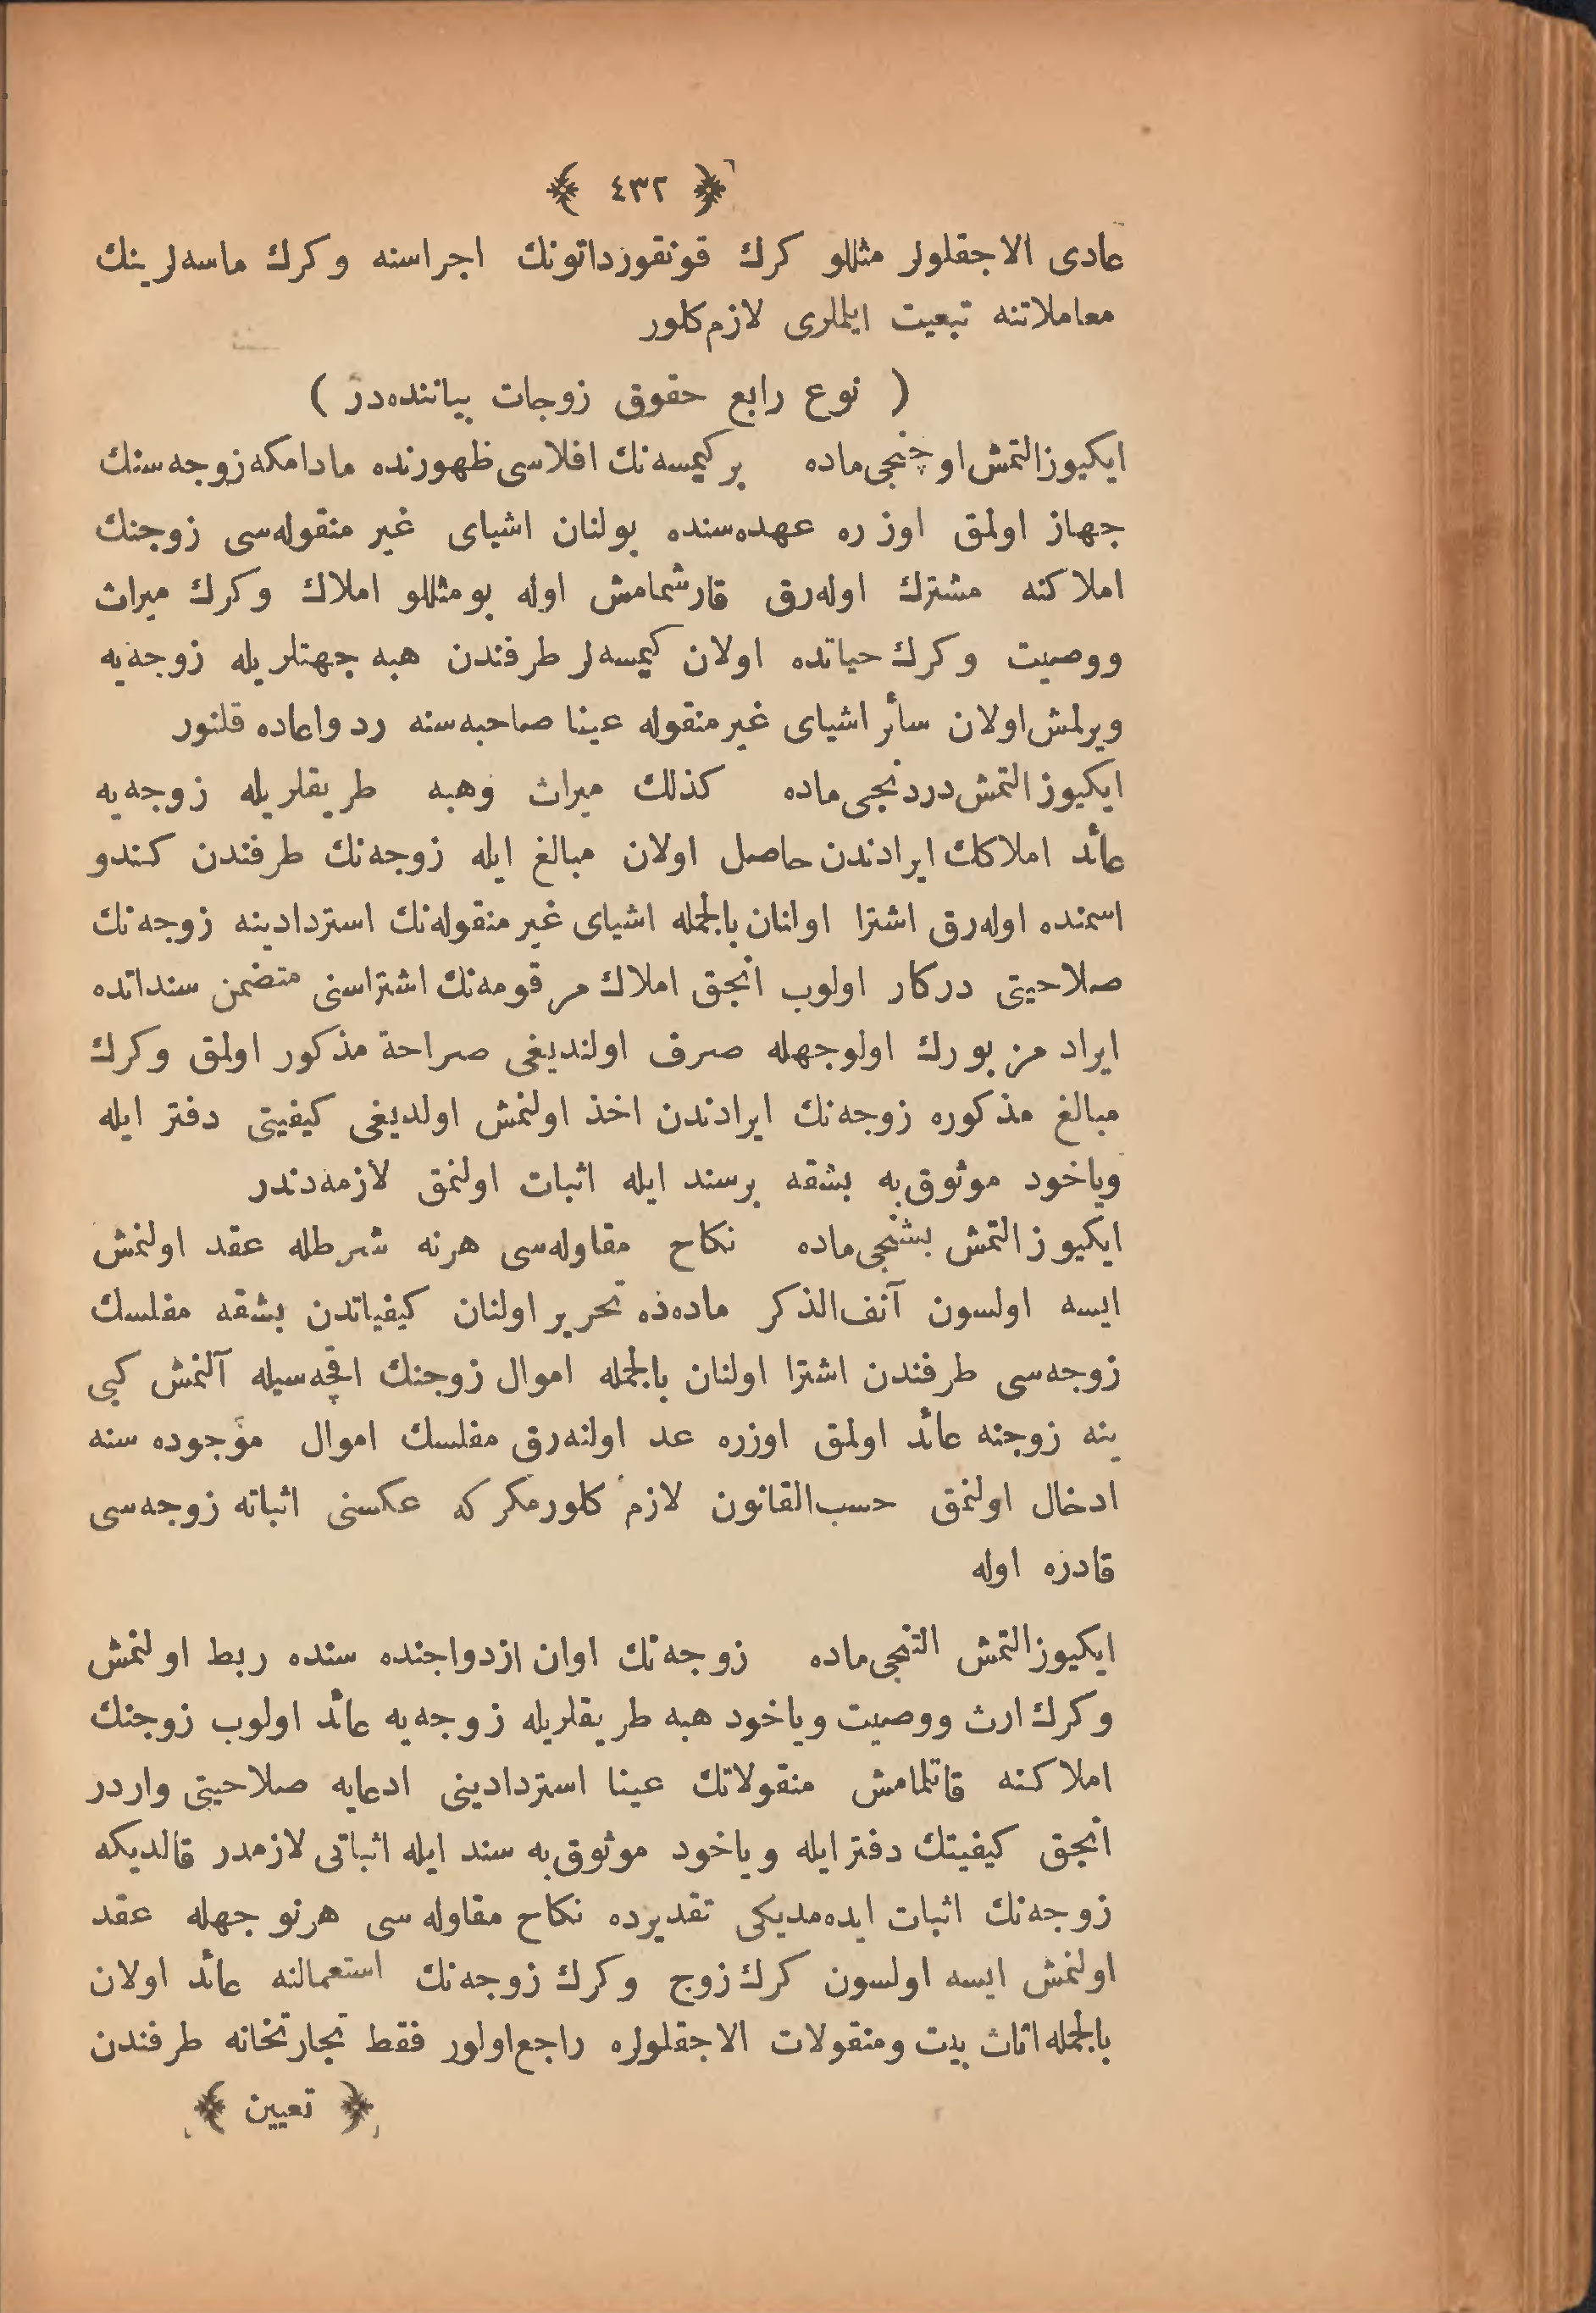 ﴿ ٤٣٢ ﴾
عادى الاجقلولر مثللو كرك قونقورداتونك اجراسنه وكرك ماسه‌لرينك
معاملاتنه تبعيت ايلملرى لازم‌كلور
( نوع رابع حقوق زوجات بياننده‌در )
ايكيوزالتمش‌اوچنجى‌ماده بركيمسه‌نك افلاسى ظهورنده مادامكه زوجه‌سنك
جهاز اولمق اوزره عهده‌سنده بولنان اشياى غير منقوله‌سى زوجنك
املاكنه مشترك اوله‌رق قارشمامش اوله بومثللو املاك وكرك ميراث
ووصيت وكرك حياتده اولان كيمسه‌لر طرفندن هبه جهتلريله زوجه‌يه
ويرلمش‌اولان سائر اشياى غيرمنقوله عينا صاحبه‌سنه رد واعاده قلنور
ايكيوزالتمش‌دردنجى‌ماده كذلك ميراث وهبه طريقلريله زوجه‌يه
عائد املاكك ايرادندن حاصل اولان مبالغ ايله زوجه‌نك طرفندن كندو
اسمنده اوله‌رق اشترا اولنان بالجمله اشياى غيرمنقوله‌نك استردادينه زوجه‌نك
صلاحيتى دركار اولوب انجق املاك مرقومه‌نك اشتراسنى متضمن سنداتده
ايراد مزبورك اولوجهله صرف اولنديغى صراحة مذكور اولمق وكرك
مبالغ مذكوره زوجه‌نك ايرادندن اخذ اولنمش اولديغى كيفيتى دفتر ايله
وياخود موثوق‌به بشقه برسند ايله اثبات اولنمق لازمه‌دندر
ايكيوزالتمش بشنجى‌ماده نكاح مقاوله‌سى هرنه شرطله عقد اولنمش
ايسه اولسون آنف‌الذكر ماده‌ده تحرير اولنان كيفياتدن بشقه مفلسك
زوجه‌سى طرفندن اشترا اولنان بالجمله اموال زوجنك اقچه‌سيله آلنمش كبى
ينه زوجنه عائد اولمق اوزره عد اولنه‌رق مفلسك اموال موجوده سنه
ادخال اولنمق حسب‌القانون لازم كلورمكر كه عكسنى اثباته زوجه‌سى
قادره اوله
ايكيوزالتمش التنجى‌ماده زوجه‌نك اوان ازدواجنده سنده ربط اولنمش
وكرك ارث ووصيت وياخود هبه طريقلريله زوجه‌يه عائد اولوب زوجنك
املاكنه قاتلمامش منقولاتك عينا استردادينى ادعايه صلاحيتى واردر
انجق كيفيتك دفتر ايله وياخود موثوق‌به سند ايله اثباتى لازمدر قالديكه
زوجه‌نك اثبات ايده‌مديكى تقديرده نكاح مقاوله سى هرنو جهله عقد
اولنمش ايسه اولسون كرك زوج وكرك زوجه‌نك استعمالنه عائد اولان
بالجمله اثاث بيت ومنقولات الاجقلولره راجع‌اولور فقط تجارتخانه طرفندن
﴿ تعيين ﴾